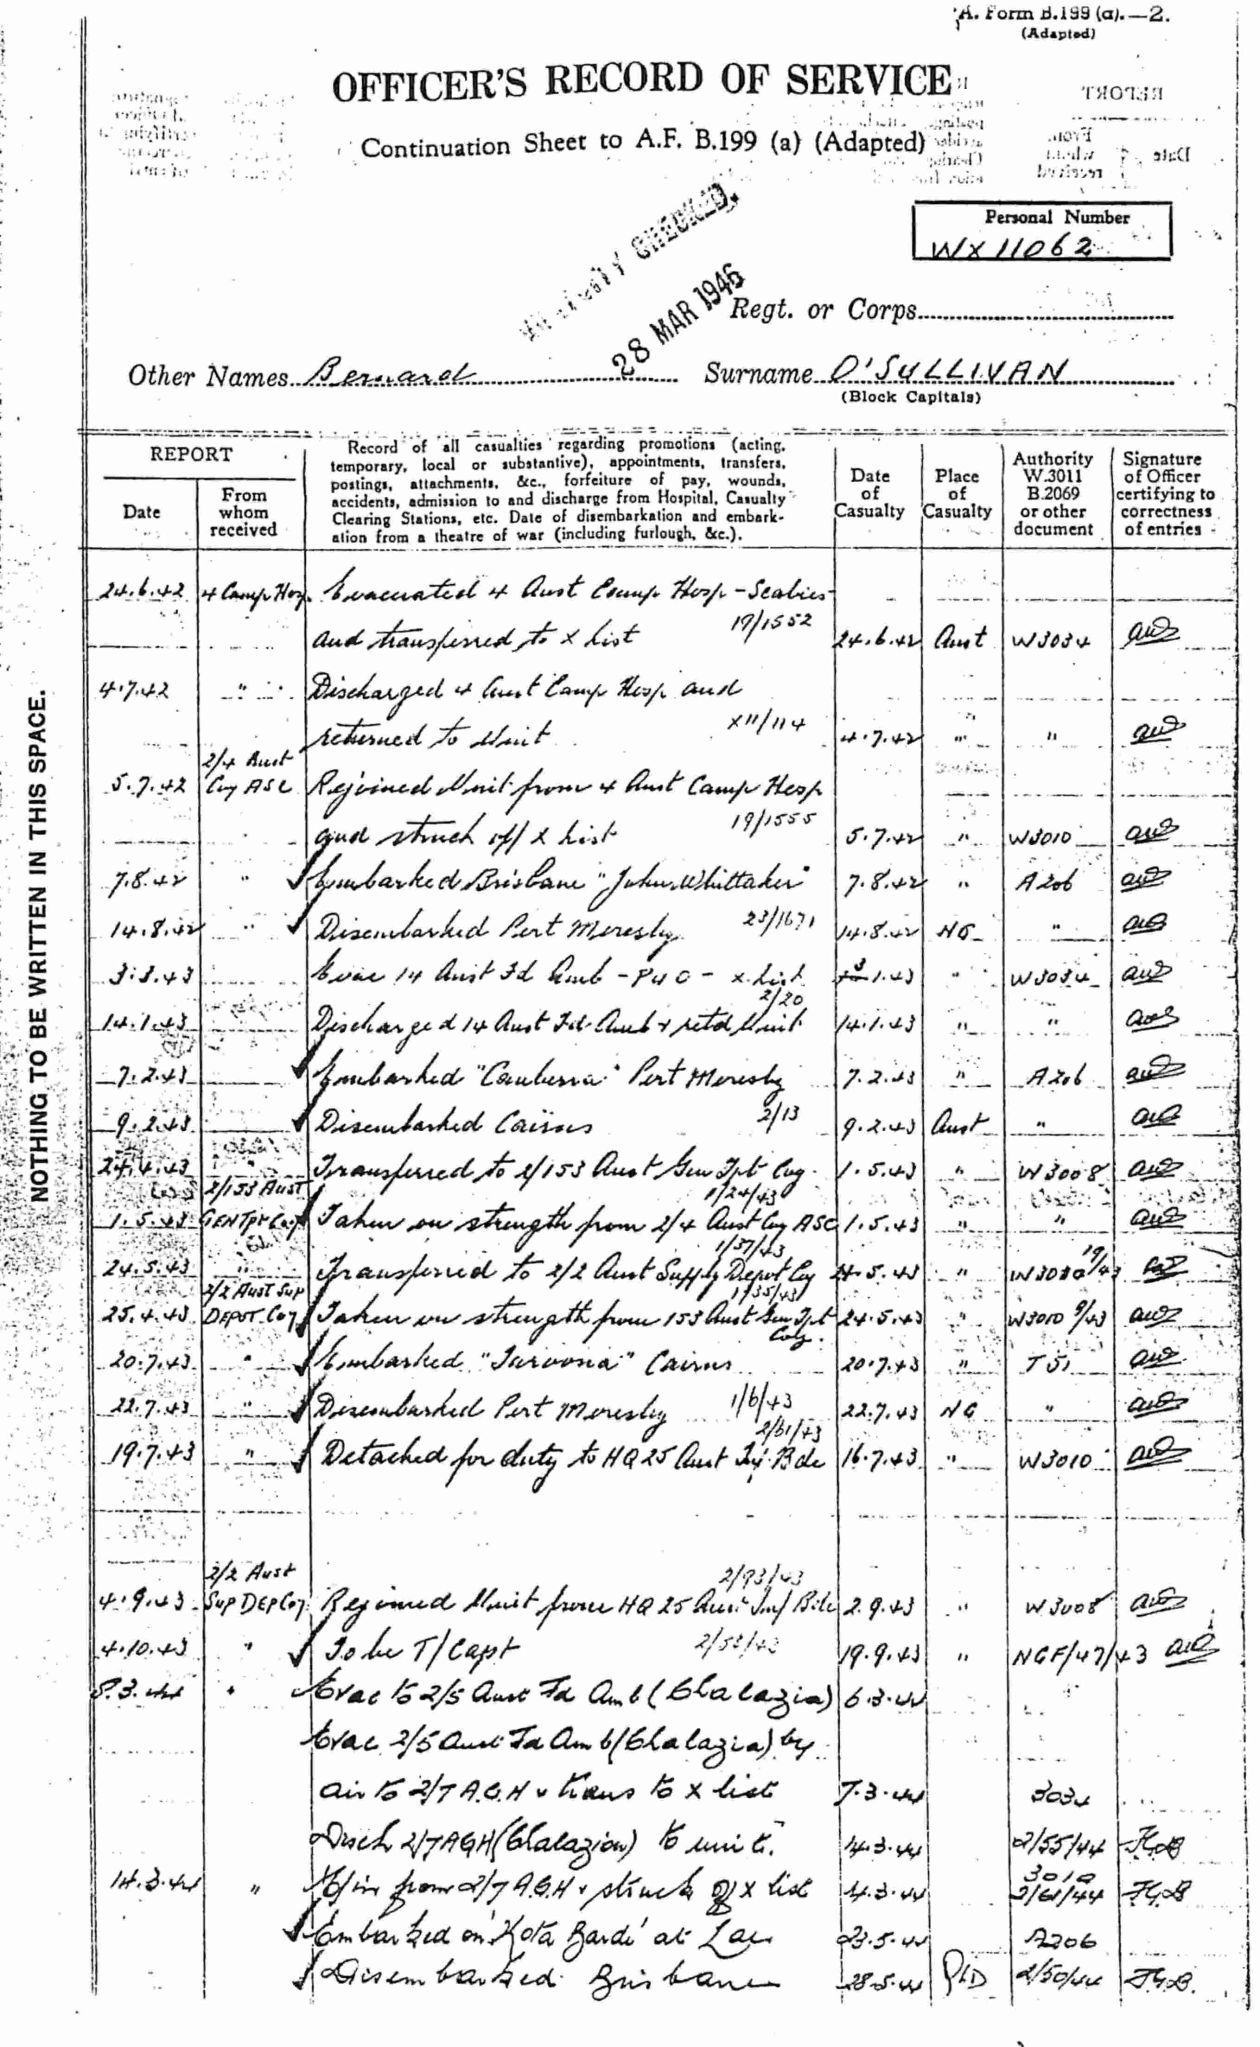 A. Form B.199 (a).—2.
(Adapted)
OFFICER'S RECORD OF SERVICE
Continuation Sheet to A.F. B.199 (a) (Adapted)
CHECKED.
28 MAR 1946
Personal Number
WX 11062
Regt. or Corps
Other Names Bernard Surname O'SULLIVAN
(Block Capitals)
NOTHING TO BE WRITTEN IN THIS SPACE.
REPORT
Date
From whom received
Record of all casualties regarding promotions (acting,
temporary, local or substantive), appointments, transfers,
postings, attachments, &c., forfeiture of pay, wounds,
accidents, admission to and discharge from Hospital, Casualty
Clearing Stations, etc. Date of disembarkation and embark-
ation from a theatre of war (including furlough, &c.).
Date of Casualty
Place of Casualty
Authority W.3011 B.2069 or other document
Signature of Officer certifying to correctness of entries
24.6.42 4 Camp Hosp. Evacuated 4 Aust Camp Hosp - Scabies
19/1552
and transferred to X list 24.6.42 Aust W3034
4.7.42 " Discharged 4 Aust Camp Hosp and
X11/114
returned to Unit 4.7.42 " "
2/4 Aust
5.7.42 Coy ASC Rejoined Unit from 4 Aust Camp Hosp
19/1555
and struck off X list 5.7.42 " W3010
7.8.42 " Embarked Brisbane "John Whittaker" 7.8.42 " A206
14.8.42 " Disembarked Port Moresby 23/1671 14.8.42 NG "
3.3.43 Evac 14 Aust Fd Amb - PUO - X list 1.43 " W3034
2/20
14.1.43 Discharged 14 Aust Fd Amb & retd Unit 14.1.43 " "
7.2.43 Embarked "Canberra" Port Moresby 7.2.43 " A206
9.2.43 Disembarked Cairns 2/13 9.2.43 Aust "
24.4.43 " Transferred to 2/153 Aust Gen Tpt Coy. 1.5.43 " W3008
2/153 Aust 1/24/43
1.5.43 GEN Tpt Coy Taken on strength from 2/4 Aust Coy ASC 1.5.43 " "
1/37/43
24.5.43 " Transferred to 2/2 Aust Supply Depot Coy 24.5.43 " W3010 19/43
2/2 Aust Sup 1/35/43
25.4.43 DEPOT Coy Taken on strength from 153 Aust Gen Tpt 24.5.43 " W3010 9/43
Coy.
20.7.43 " Embarked "Taroona" Cairns 20.7.43 " T51
22.7.43 " Disembarked Port Moresby 1/6/43 22.7.43 NG "
2/61/43
19.7.43 " Detached for duty to HQ 25 Aust Inf Bde 16.7.43 " W3010
2/2 Aust 2/93/43
4.9.43 Sup DEP Coy Rejoined Unit from HQ 25 Aust Inf Bde 2.9.43 " W3008
4.10.43 " To be T/Capt 2/52/43 19.9.43 " NGF/47/43
8.3.44 " Evac to 2/5 Aust Fd Amb (Chalazia) 6.3.44
Evac 2/5 Aust Fd Amb (Chalazia) by
air to 2/7 A.G.H & trans to X list 7.3.44 3034
Disch 2/7 AGH (Chalazion) to unit. 14.3.44 2/55/44
3010
14.3.44 " M/in from 2/7 A.G.H & struck off X list 14.3.44 2/61/44
Embarked on 'Kota Bardi' at Lae 23.5.44 A206
Disembarked Brisbane 28.5.44 QLD 2/50/44